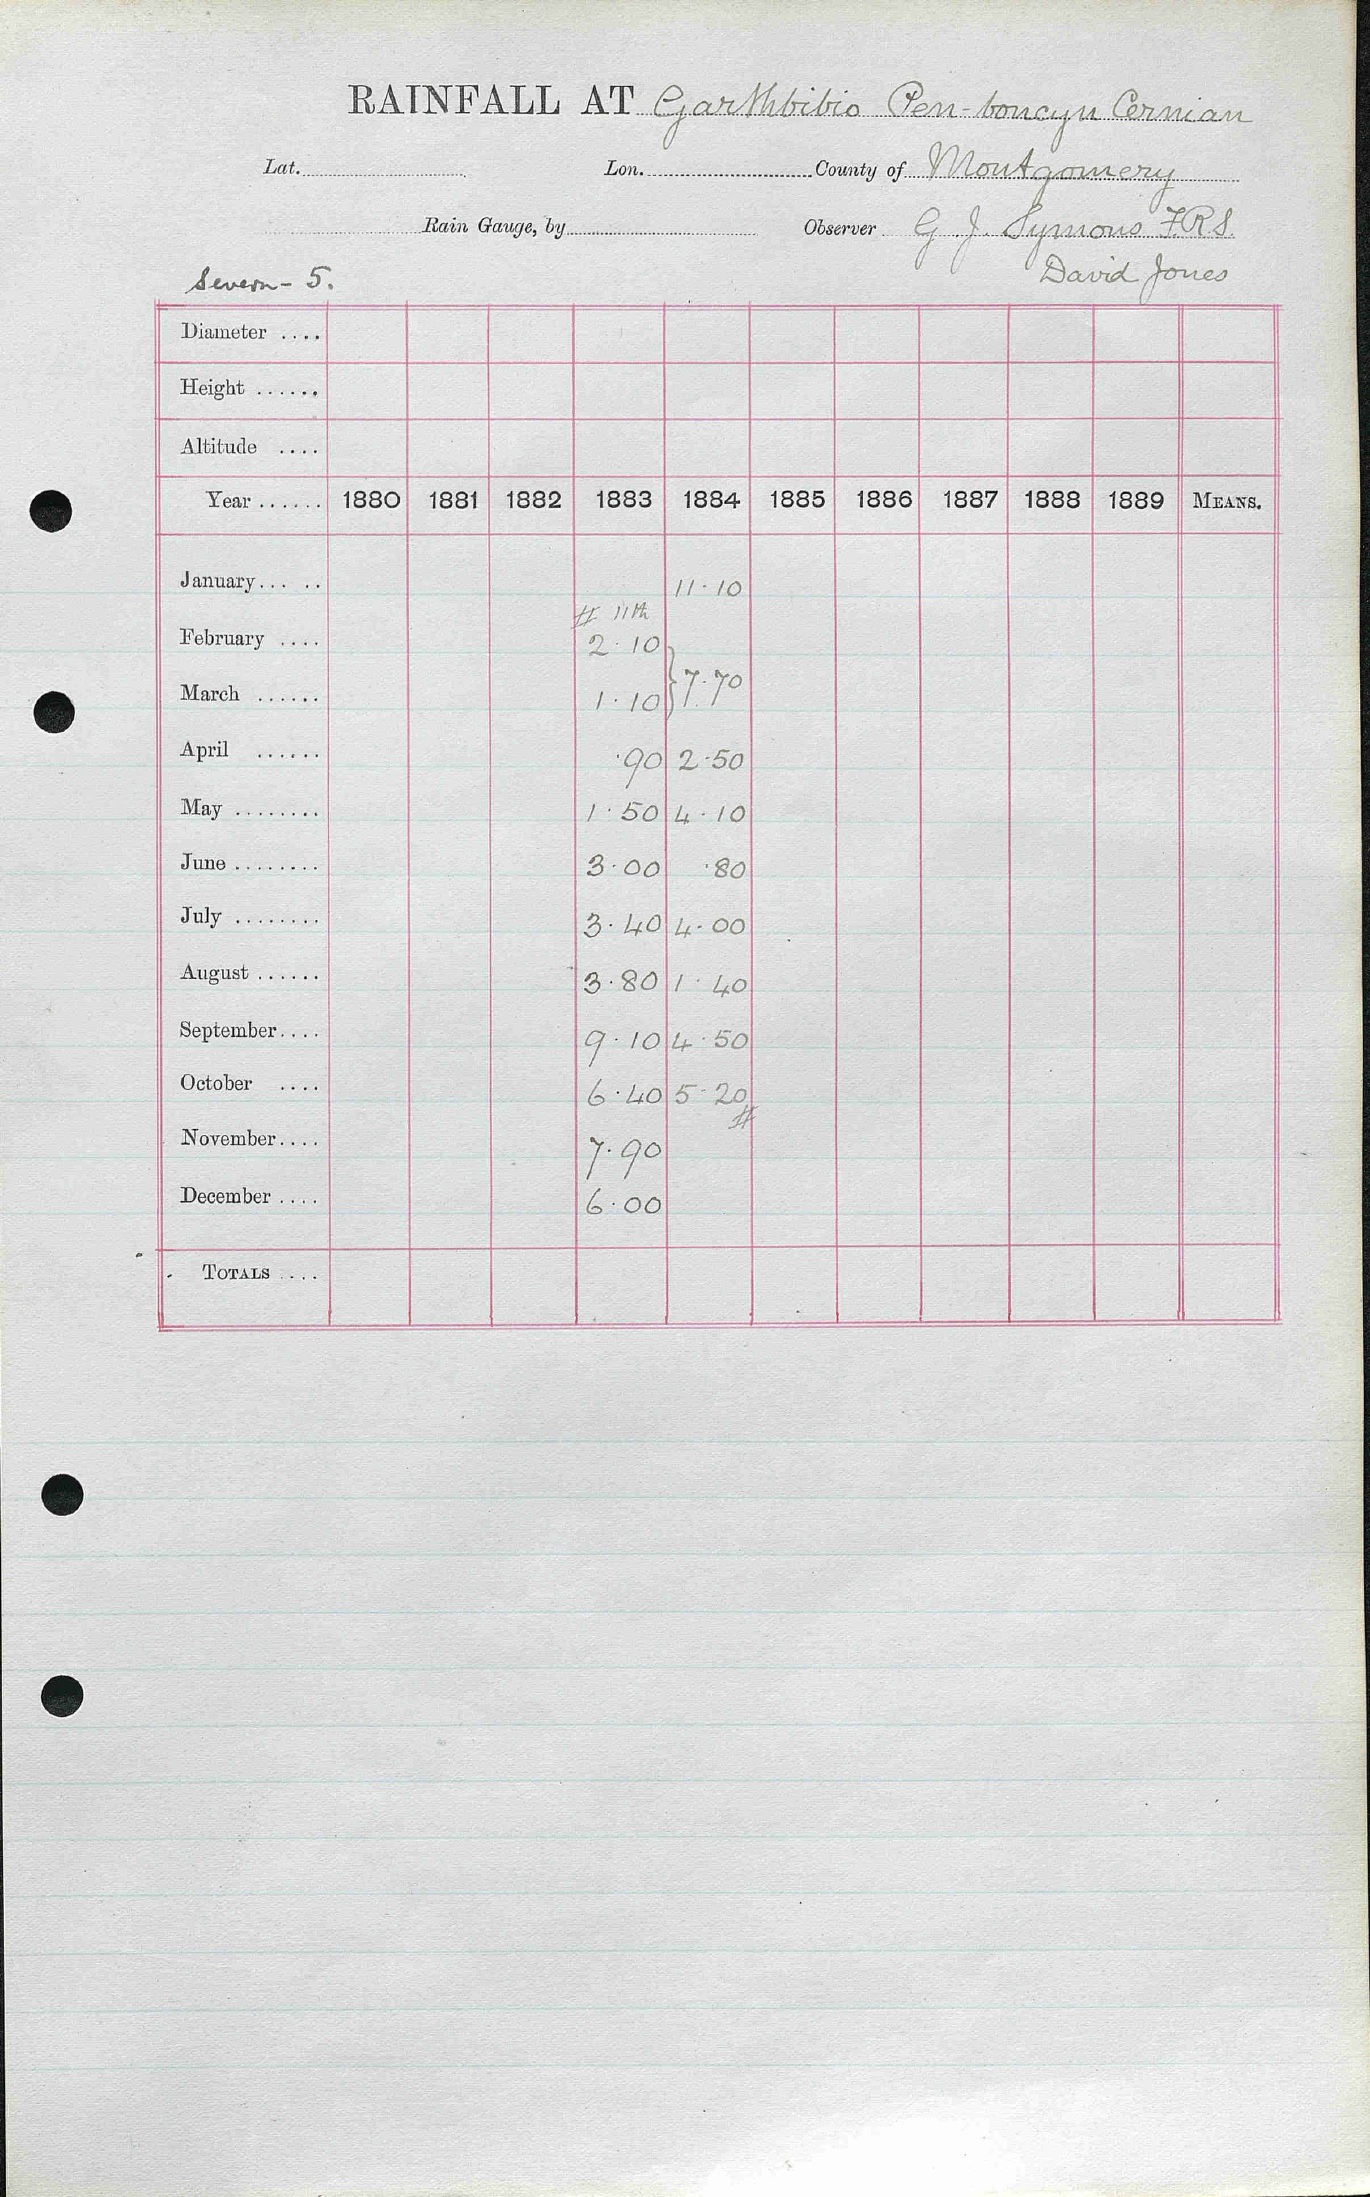 RAINFALL AT Garthbibio Pen-boncyn Cernian
Lat. Lon. County of Montgomery
Rain Gauge, by Observer G J. Symons F.R.S.
Severn - 5. David Jones
Diameter ....
Height ......
Altitude ....
Year ...... 1880 1881 1882 1883 1884 1885 1886 1887 1888 1889 MEANS.
January... .. 11·10
# 11th
February .... 2·10
} 7·70
March ...... 1·10
April ...... ·90 2·50
May ........ 1·50 4·10
June ........ 3·00 ·80
July ........ 3·40 4·00
August ...... 3·80 1·40
September.... 9·10 4·50
October .... 6·40 5·20
#
November.... 7·90
December .... 6·00
TOTALS ....